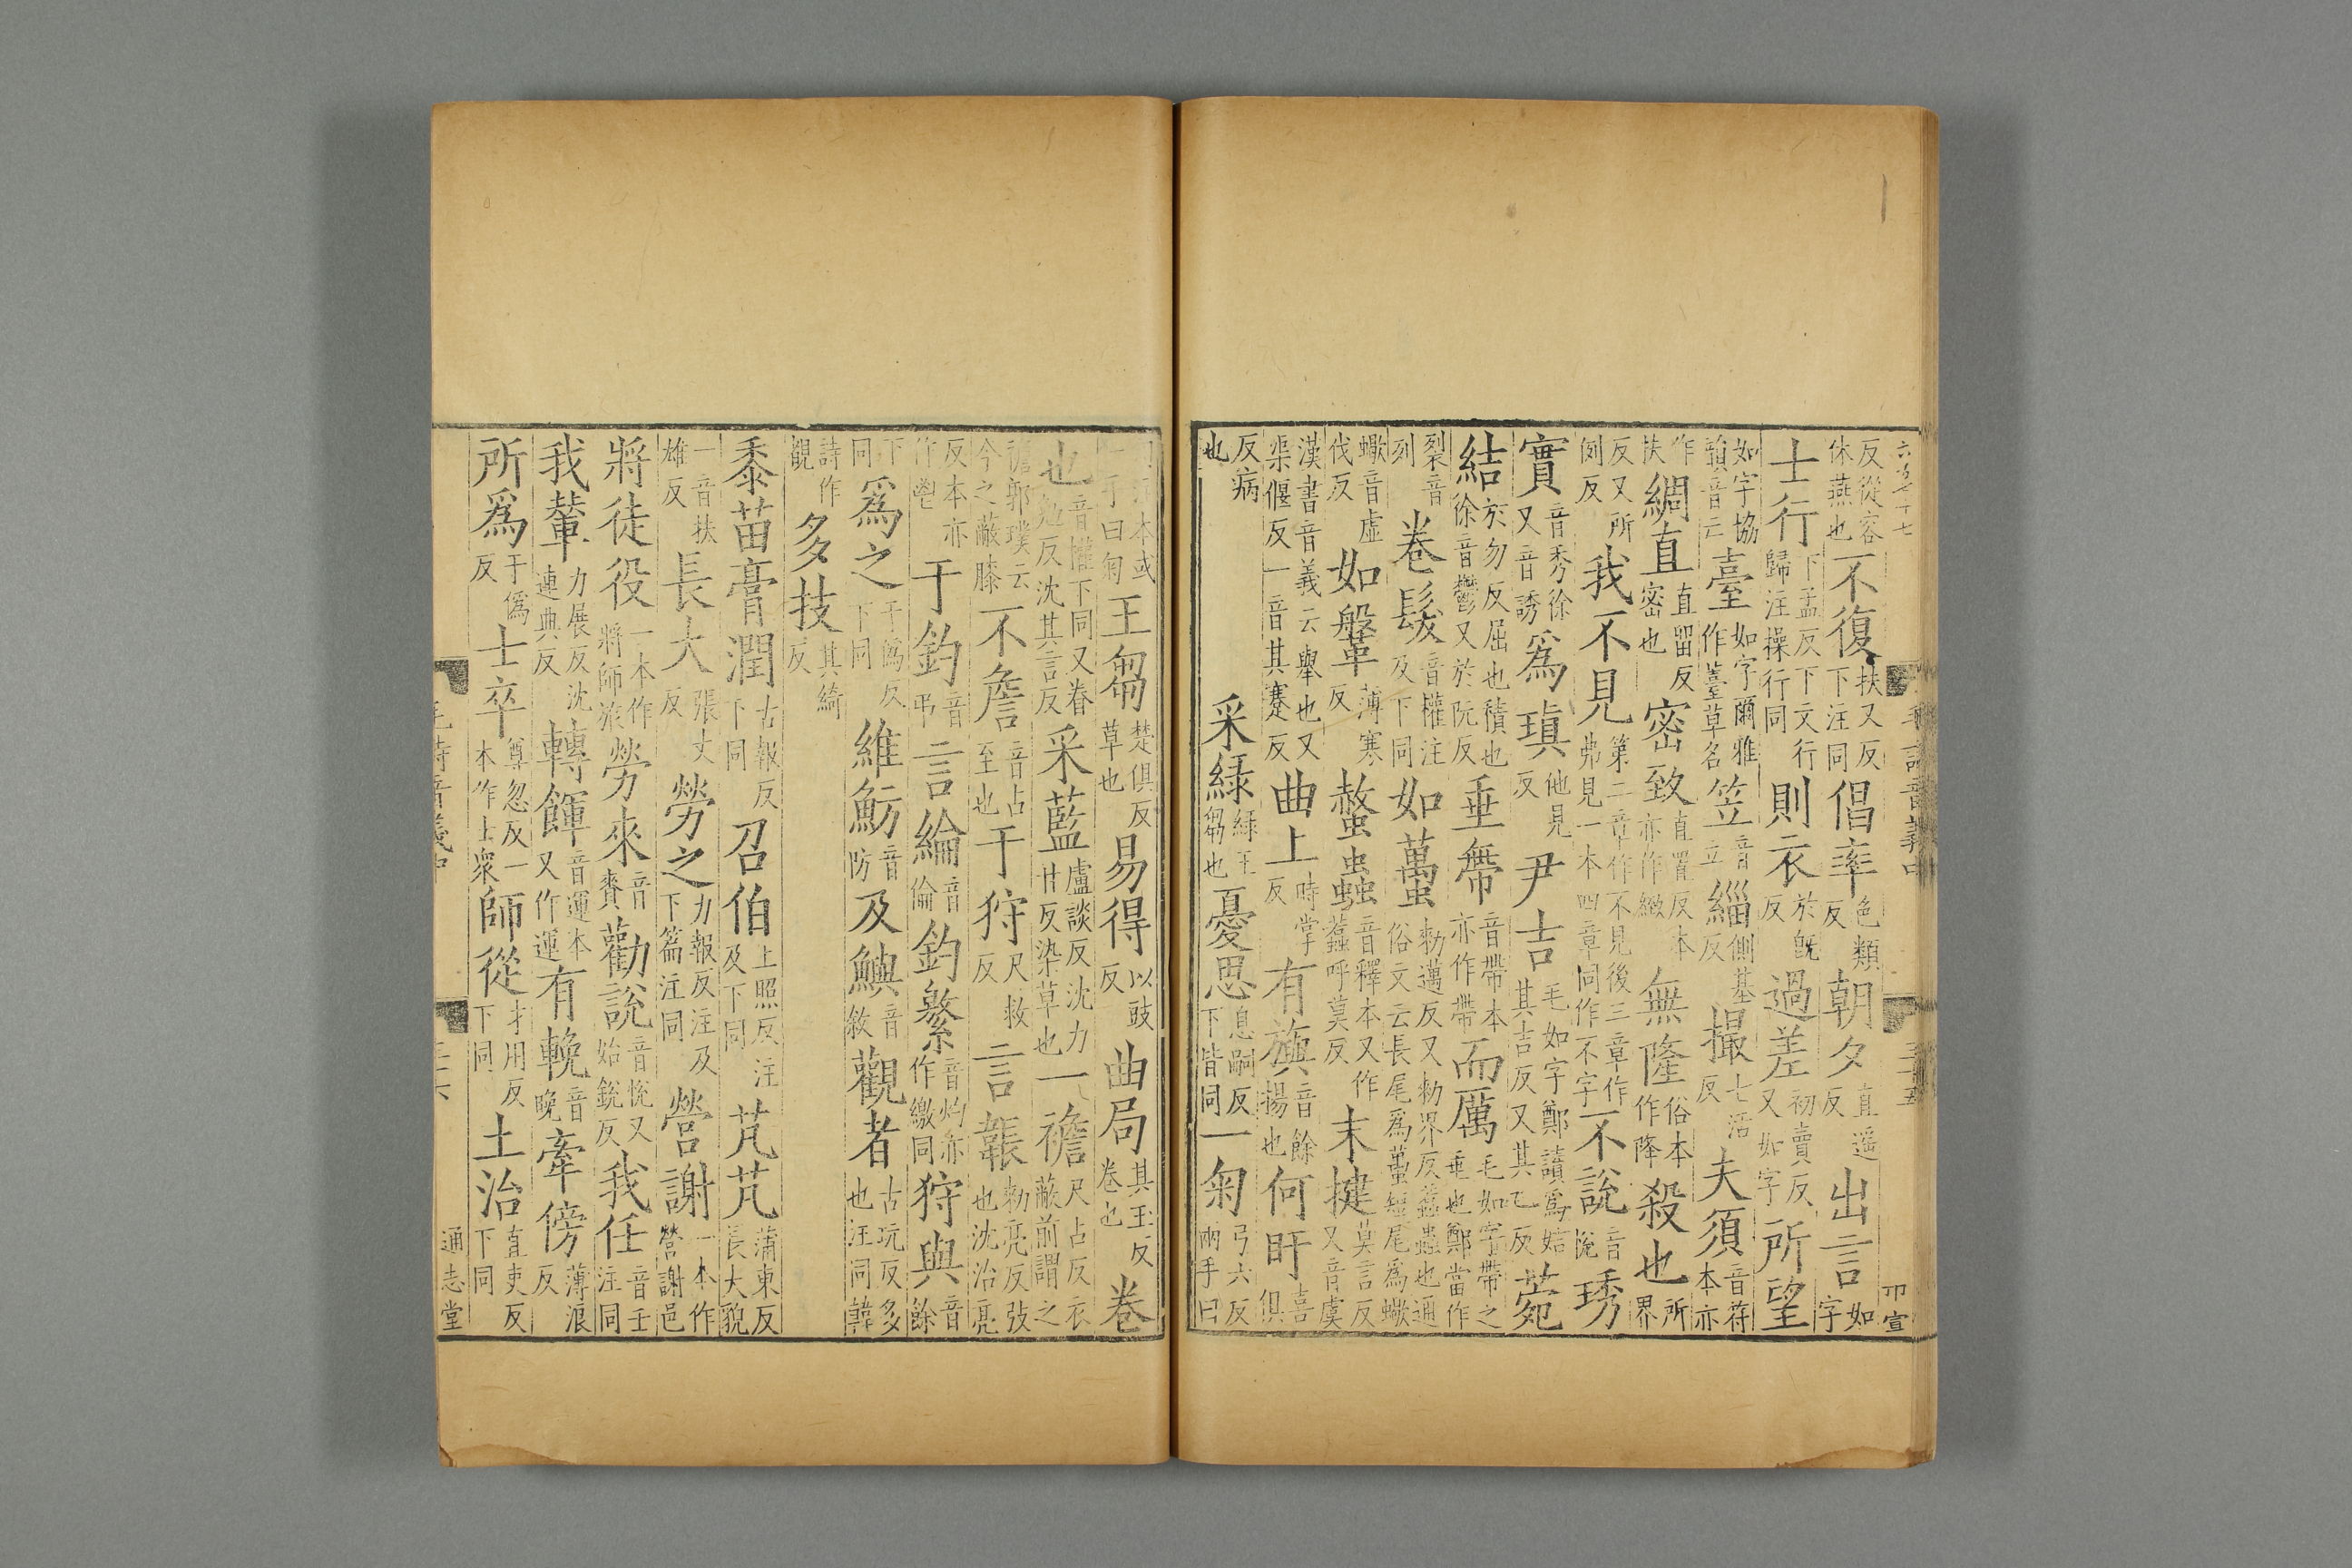 反從容休燕也不復扶又反下注同倡率色類反朝夕直遥反出言如字
士行下孟反下文行歸注操行同則衣於旣反過差初賣反又如字所望
如字協韻音云臺如字爾雅作薹草名笠音立緇側基反撮七活反夫須音符本亦
作扶綢直直留反密也密致直置反本亦作緻無隆俗本作降殺也所界
反又所例反我不見第二章作不見後三章作弗見一本四章同作不字不說音悅琇
實音秀徐又音誘爲瑱他見反尹吉毛如字鄭讀爲姞其吉反又其乙反菀
結於勿反屈也積也徐音鬱又於阮反垂帶音帶本亦作帶而厲毛如字帶之垂也鄭當作
裂音列卷髮音權注及下同如蠆勑邁反又勑界反蠚蟲也通俗文云長尾爲蠆短尾爲蠍
蠍音虛伐反如鞶薄寒反螫蟲音釋本又作蠚呼莫反末揵莫言反又音虔
漢書音義云舉也又渠偃反一音其蹇反曲上時掌反有旟音餘揚也何盱喜俱
反病也
采綠綠王芻也憂思息嗣反下皆同一匊弓六反兩手曰
王芻楚俱反草也易得以豉反曲局其玉反卷也卷
也音權下同又眷勉反沈其言反采藍盧談反沈力甘反染草也一襜尺占反衣蔽前謂之
襜郭璞云今之蔽膝不詹音占至也于狩尺救反言韔勑亮反弢也沈治亮
反本亦作鬯于釣音弔言綸音倫釣繳音灼亦作繳同狩與音餘
下同爲之于僞反下同維魴音防及鱮音敘觀者古玩反多也注同韓
詩作覩多技其綺反
黍苗膏潤古報反下同召伯上照反注及下同芃芃蒲東反長大貌
一音扶雄反長大張丈反勞之力報反注及下篇注同營謝一本作營謝邑
將徒役一本作將師旅勞來音賚勸說音悅又始銳反我任音壬注同
我輦力展反沈連典反轉餫音運本又作運有輓音晚牽傍薄浪反
所爲于僞反士卒尊忽反一本作士衆師從才用反下同土治直吏反下同
通志堂